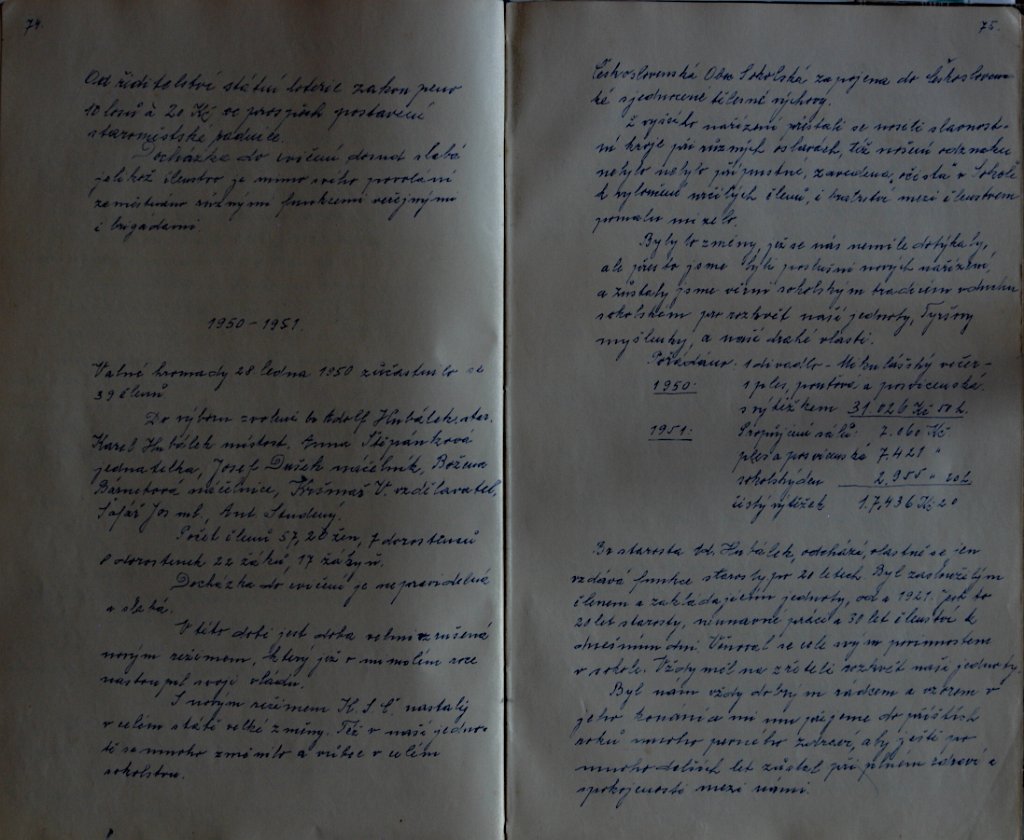 74.
Od ředitelství státní loterie zakoupeno
10 losů à 20 Kč ve prospěch postavení
staroměstské radnice.
Docházka do cvičení dosud slabá
jelikož členstvo je mimo svého povolání
zaměstnáno různými funkcemi veřejnými
i brigádami.
1950 – 1951.
Valné hromady 28. ledna 1950 zúčastnilo se
39 členů
Do výboru zvoleni br. Adolf Hubálek, star.
Karel Hubálek místost. Anna Štěpánková
jednatelka, Josef Dušek náčelník, Božena
náčelnice, V. vzdělavatel,
Šafář Jos ml., Ant. Studený.
Počet členů 57, 20 žen, 7 dorostenců
8 dorostenek 22 žáků, 17 žákyň.
Docházka do cvičení je nepravidelná
a slabá.
V této době jest doba velmi vzrušená
novým režimem, který již v minulém roce
nastoupil svoji vládu.
S novým režimem K.S.Č. nastaly
v celém státě velké změny. Též v naší jedno-
tě se mnoho změnilo a vůbec v celém
sokolstvu.
75.
Československá Obec Sokolská zapojena do Českosloven-
ké sjednocené tělesné výchovy.
Z vyššího nařízení přestali se nositi slavnost-
ní kroje při různých oslavách, též nošení odznaku
nebylo přípustné, zavedena, očista v Sokole
k vyloučení určitých členů, i bratrství mezi členstvem
pomalu mizelo.
Byly to změny, jež se nás nemile dotýkaly,
ale přes to jsme byli poslušni nových nařízení,
a zůstaly jsme věrni sokolským tradicím v duchu
sokolském pro rozkvět naší jednoty, Tyršovy
myšlenky, a naší drahé vlasti.
Pořádáno. 1 divadlo – Mikulášský večer –
1950: 1 ples, pouťová a posvícenská
s výtěžkem 31.026 Kč 50 h.
1951: Propůjčení sálů: 7.060 Kč.
ples a posvícenská 7.421 "
sokolský den 2.955 " 20 h
čistý výtěžek 17,436 Kč 20
Br starosta Ad. Hubálek, odchází, vlastně se jen
vzdává funkce starosty po 20 letech. Byl zasloužilým
členem a zakládajícím jednoty, od r. 1921. Jest to
20 let starosty, neúnavné práce a 30 let členství k
dnešnímu dni. Věnoval se cele svým povinnostem
v sokole. Vždy měl na zřeteli rozkvět naší jednoty.
Byl nám vždy dobrým rádcem a vzorem v
jeho konání a mi mu přejeme do příštích
roků mnoho pevného zdraví, aby ještě po
mnoho dalších let zůstal při plném zdraví a
spokojenosti mezi námi.